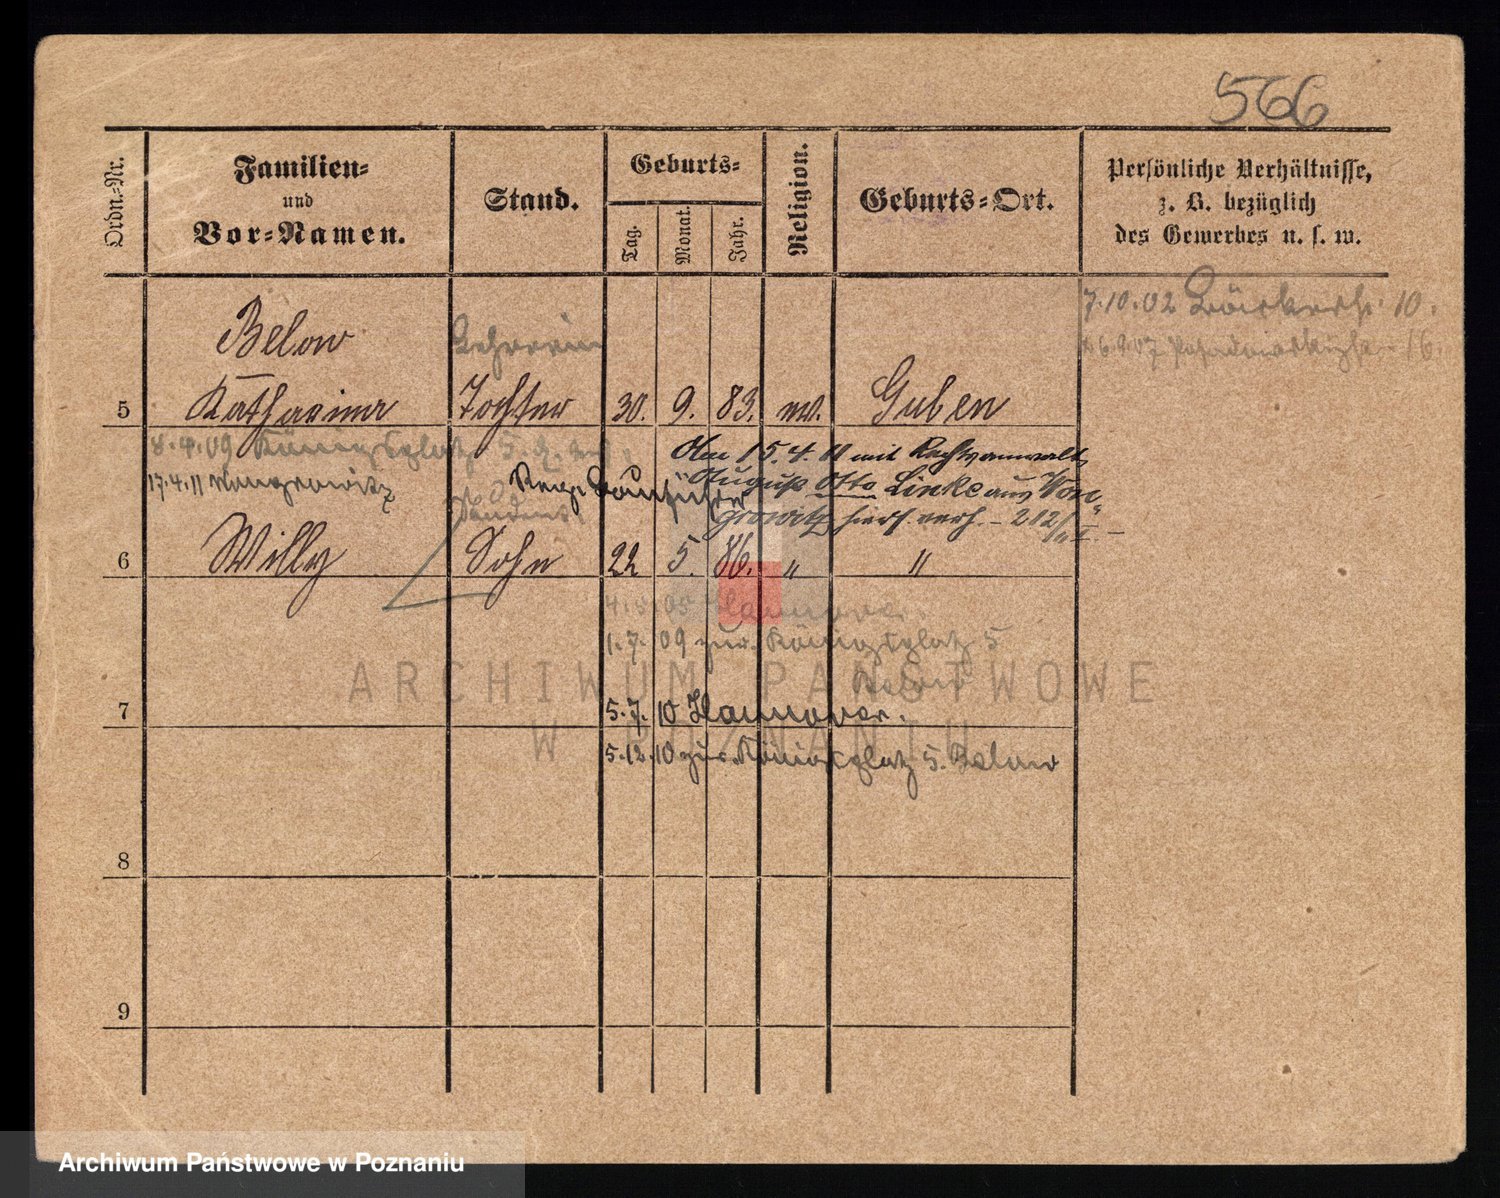 566
Ordn.-Nr.
Familien-
und
Vor-Namen.
Stand.
Geburts-
Tag.
Monat.
Jahr.
Religion.
Geburts-Ort.
Persönliche Verhältnisse,
z. B. bezüglich
des Gewerbes u. s. w.
7.10.02 Bäckerstr. 10.
6.9.07 16.
Below
Lehrerin
5 Katharina Tochter 30. 9. 83. ev. Guben
8.4.09 Königsplatz 5.
Am 15.4.11 mit Rechtsanwalt
17.4.11 Wongrowitz
August Otto Linke aus Won-
growitz hier verh. - 212/11 I. -
Reg. Bauführer
Student
6 Willy Sohn 22 5. 86. " "
4.5.05 Hannover.
1.7.09 zur. Königsplatz 5
Below
7
5.7.10 Hannover.
5.12.10 zur. Königsplatz 5. Below
8
9
ARCHIWUM PAŃSTWOWE
W POZNANIU
Archiwum Państwowe w Poznaniu